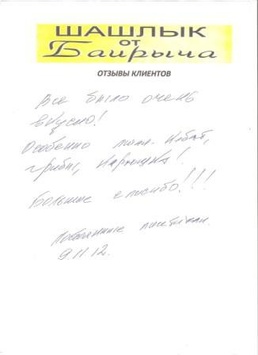 ШАШЛЫК
от
Баирыча
ОТЗЫВЫ КЛИЕНТОВ
Все было очень
вкусно!
Особенно
грибы, картошка!
Большое спасибо!!!
9.11.12.